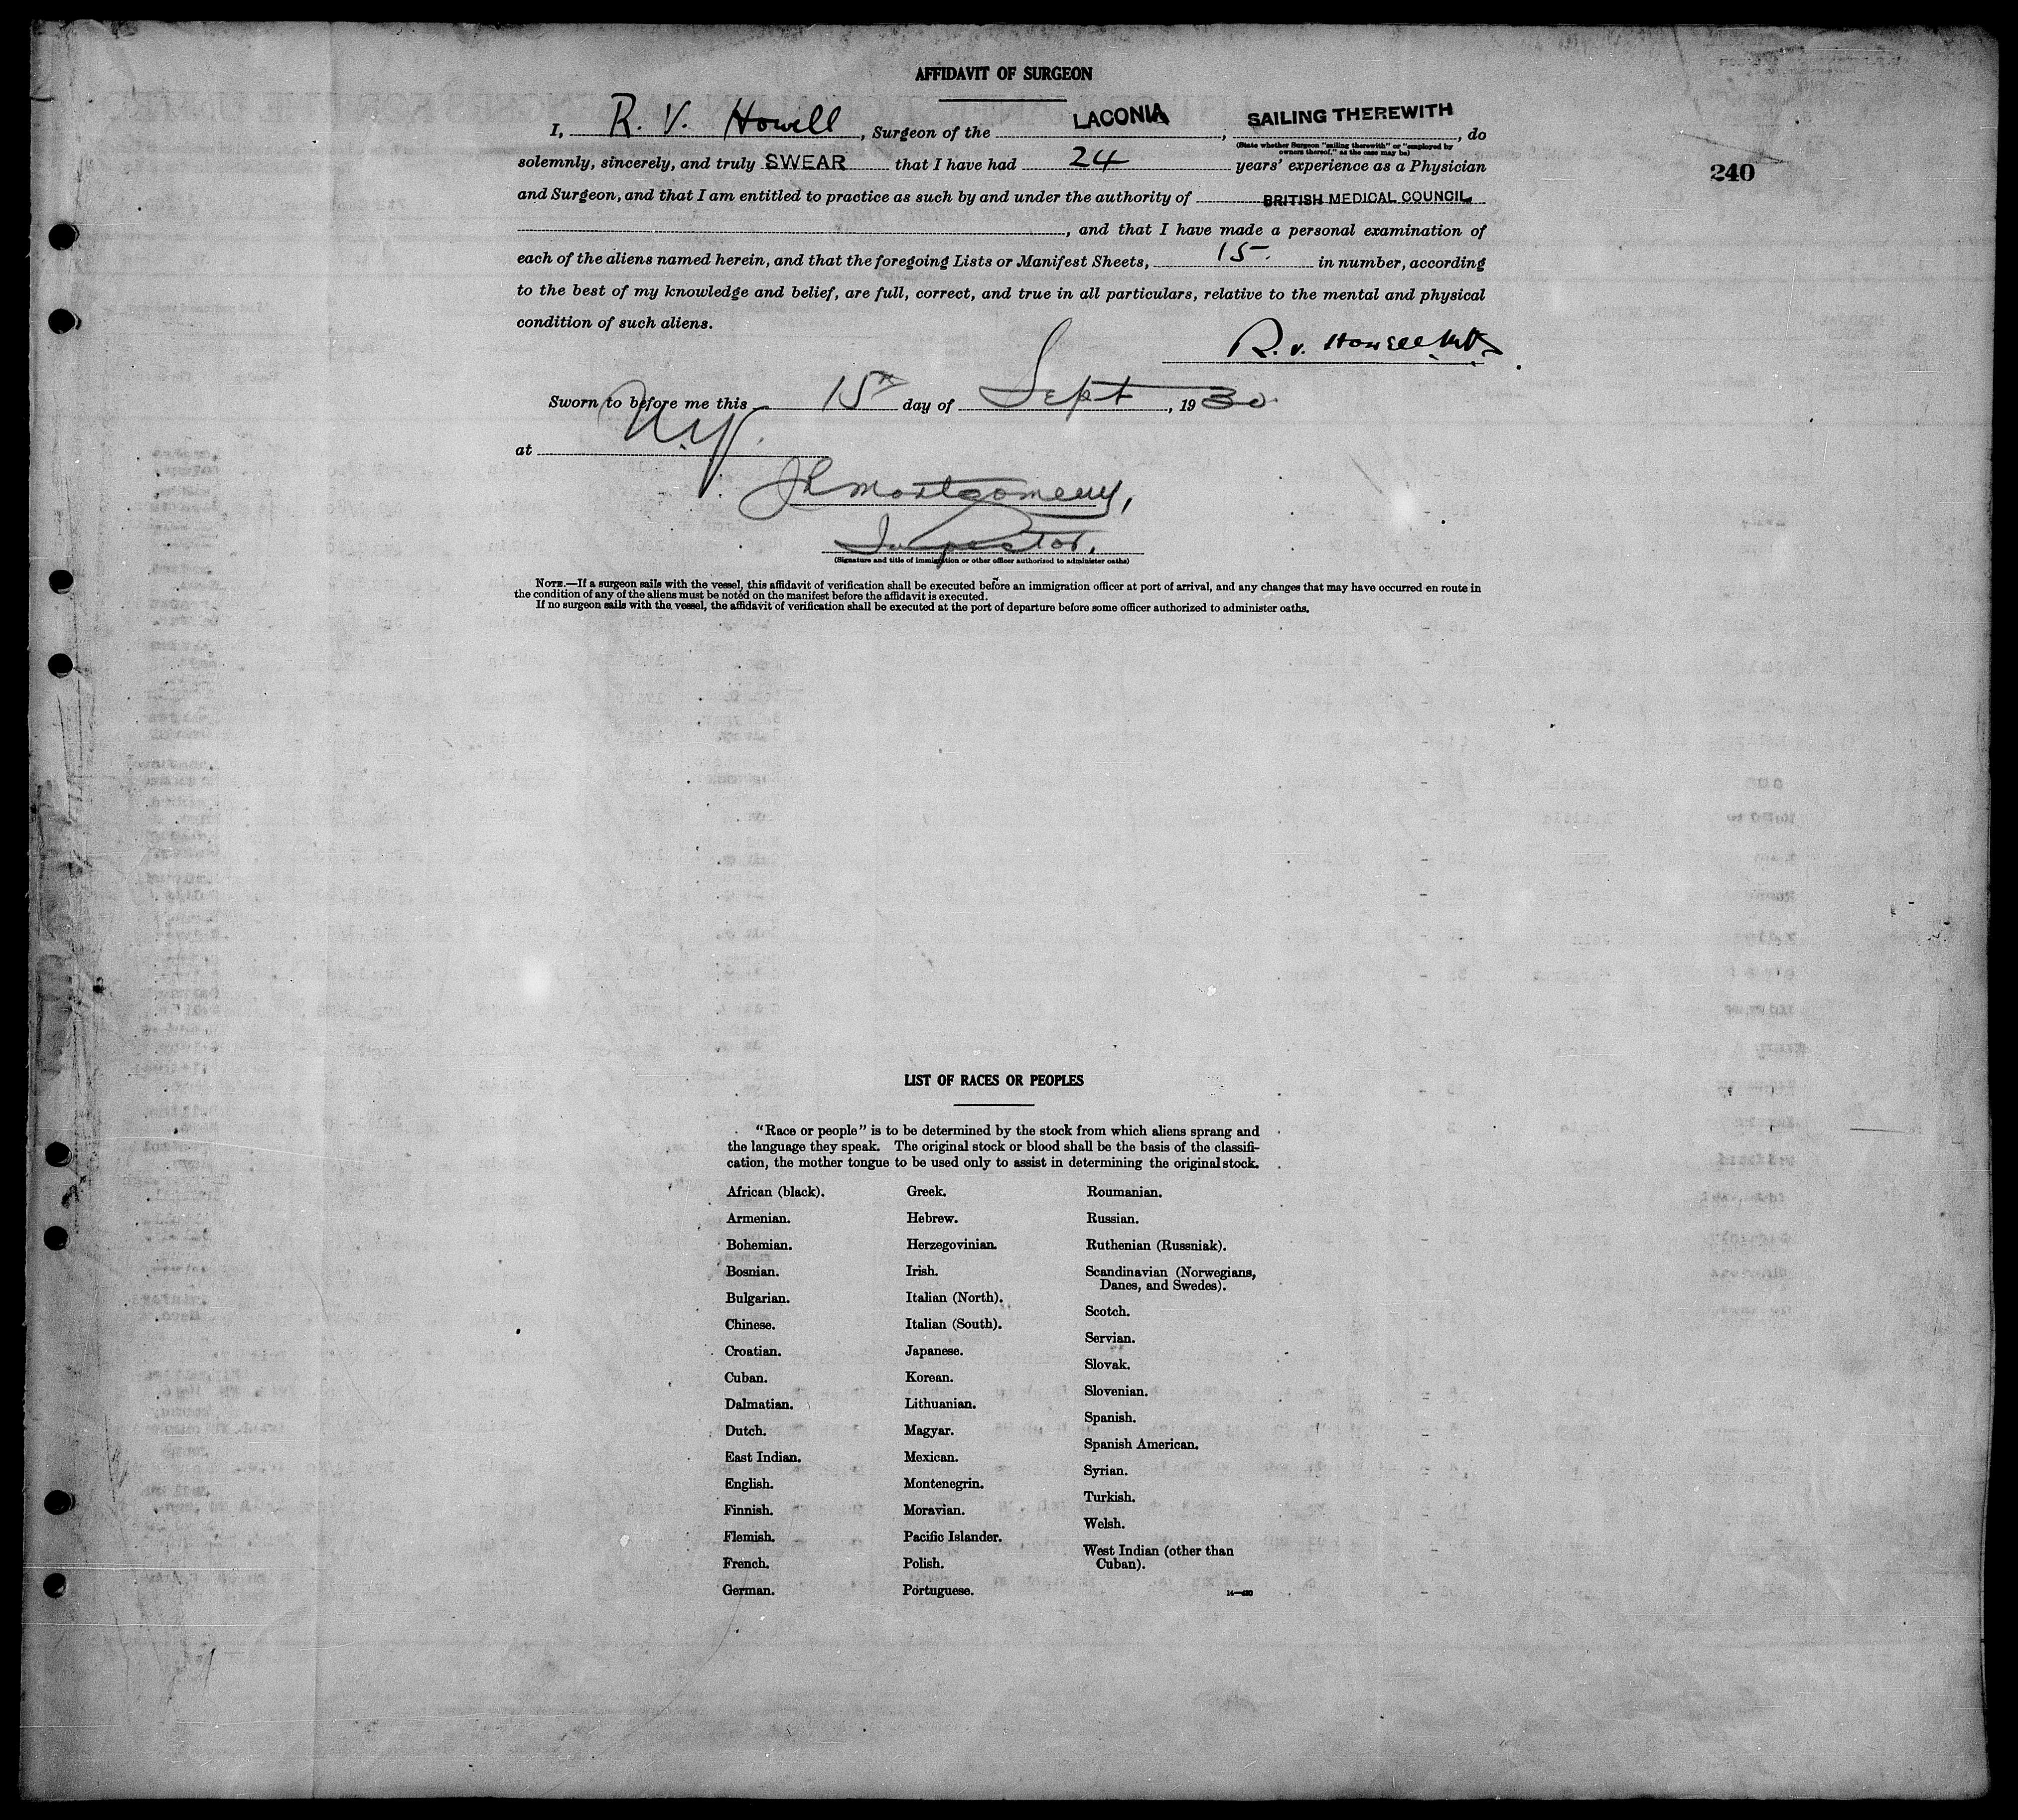 AFFIDAVIT OF SURGEON
I, R. V. Howell, Surgeon of the LACONIA, SAILING THEREWITH, do
(State whether Surgeon "sailing therewith" or "employed by
owners thereof," as the case may be)
solemnly, sincerely, and truly SWEAR that I have had 24 years' experience as a Physician
240
and Surgeon, and that I am entitled to practice as such by and under the authority of BRITISH MEDICAL COUNCIL
, and that I have made a personal examination of
each of the aliens named herein, and that the foregoing Lists or Manifest Sheets, 15. in number, according
to the best of my knowledge and belief, are full, correct, and true in all particulars, relative to the mental and physical
condition of such aliens.
R. V. Howell
Sworn to before me this 15th day of Sept, 1930
at N.Y.
JR Montgomery,
Inspector.
(Signature and title of immigration or other officer authorized to administer oaths)
NOTE.—If a surgeon sails with the vessel, this affidavit of verification shall be executed before an immigration officer at port of arrival, and any changes that may have occurred en route in
the condition of any of the aliens must be noted on the manifest before the affidavit is executed.
If no surgeon sails with the vessel, the affidavit of verification shall be executed at the port of departure before some officer authorized to administer oaths.
LIST OF RACES OR PEOPLES
"Race or people" is to be determined by the stock from which aliens sprang and
the language they speak. The original stock or blood shall be the basis of the classifi-
cation, the mother tongue to be used only to assist in determining the original stock.
African (black).
Armenian.
Bohemian.
Bosnian.
Bulgarian.
Chinese.
Croatian.
Cuban.
Dalmatian.
Dutch.
East Indian.
English.
Finnish.
Flemish.
French.
German.
Greek.
Hebrew.
Herzegovinian.
Irish.
Italian (North).
Italian (South).
Japanese.
Korean.
Lithuanian.
Magyar.
Mexican.
Montenegrin.
Moravian.
Pacific Islander.
Polish.
Portuguese.
Roumanian.
Russian.
Ruthenian (Russniak).
Scandinavian (Norwegians,
Danes, and Swedes).
Scotch.
Servian.
Slovak.
Slovenian.
Spanish.
Spanish American.
Syrian.
Turkish.
Welsh.
West Indian (other than
Cuban).